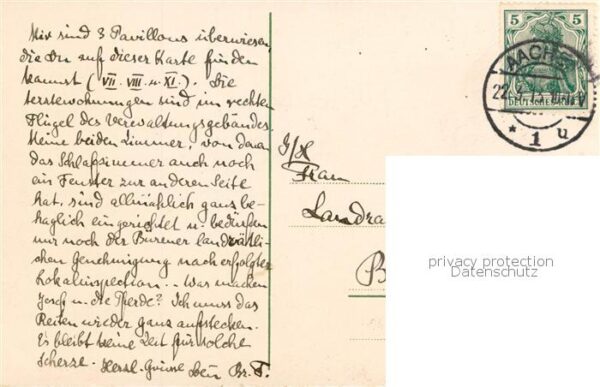 Mir sind 3 Pavillons überwiesen
die Du auf dieser Karte finden
kannst (VII. VIII. u. XI.) Die
Ärztewohnungen sind im rechten
Flügel des Verwaltungsgebäudes.
Meine beiden Zimmer, von denen
das Schlafzimmer auch noch
ein Fenster zur anderen Seite
hat, sind allmählich ganz be-
haglich eingerichtet u. bedürfen
nur noch der Burener landrätli-
chen Genehmigung nach erfolgter
Lokalinspection. Was machen
Josef u. die Pferde? Ich muss das
Reiten wieder ganz aufstecken.
Es bleibt keine Zeit für solche
Scherze. Herzl. Grüsse Dein Br. F.
5 5
AACHEN
22.4.15
DEUTSCHES REICH
* 1 u
Frau
Landra
B
privacy protection
Datenschutz